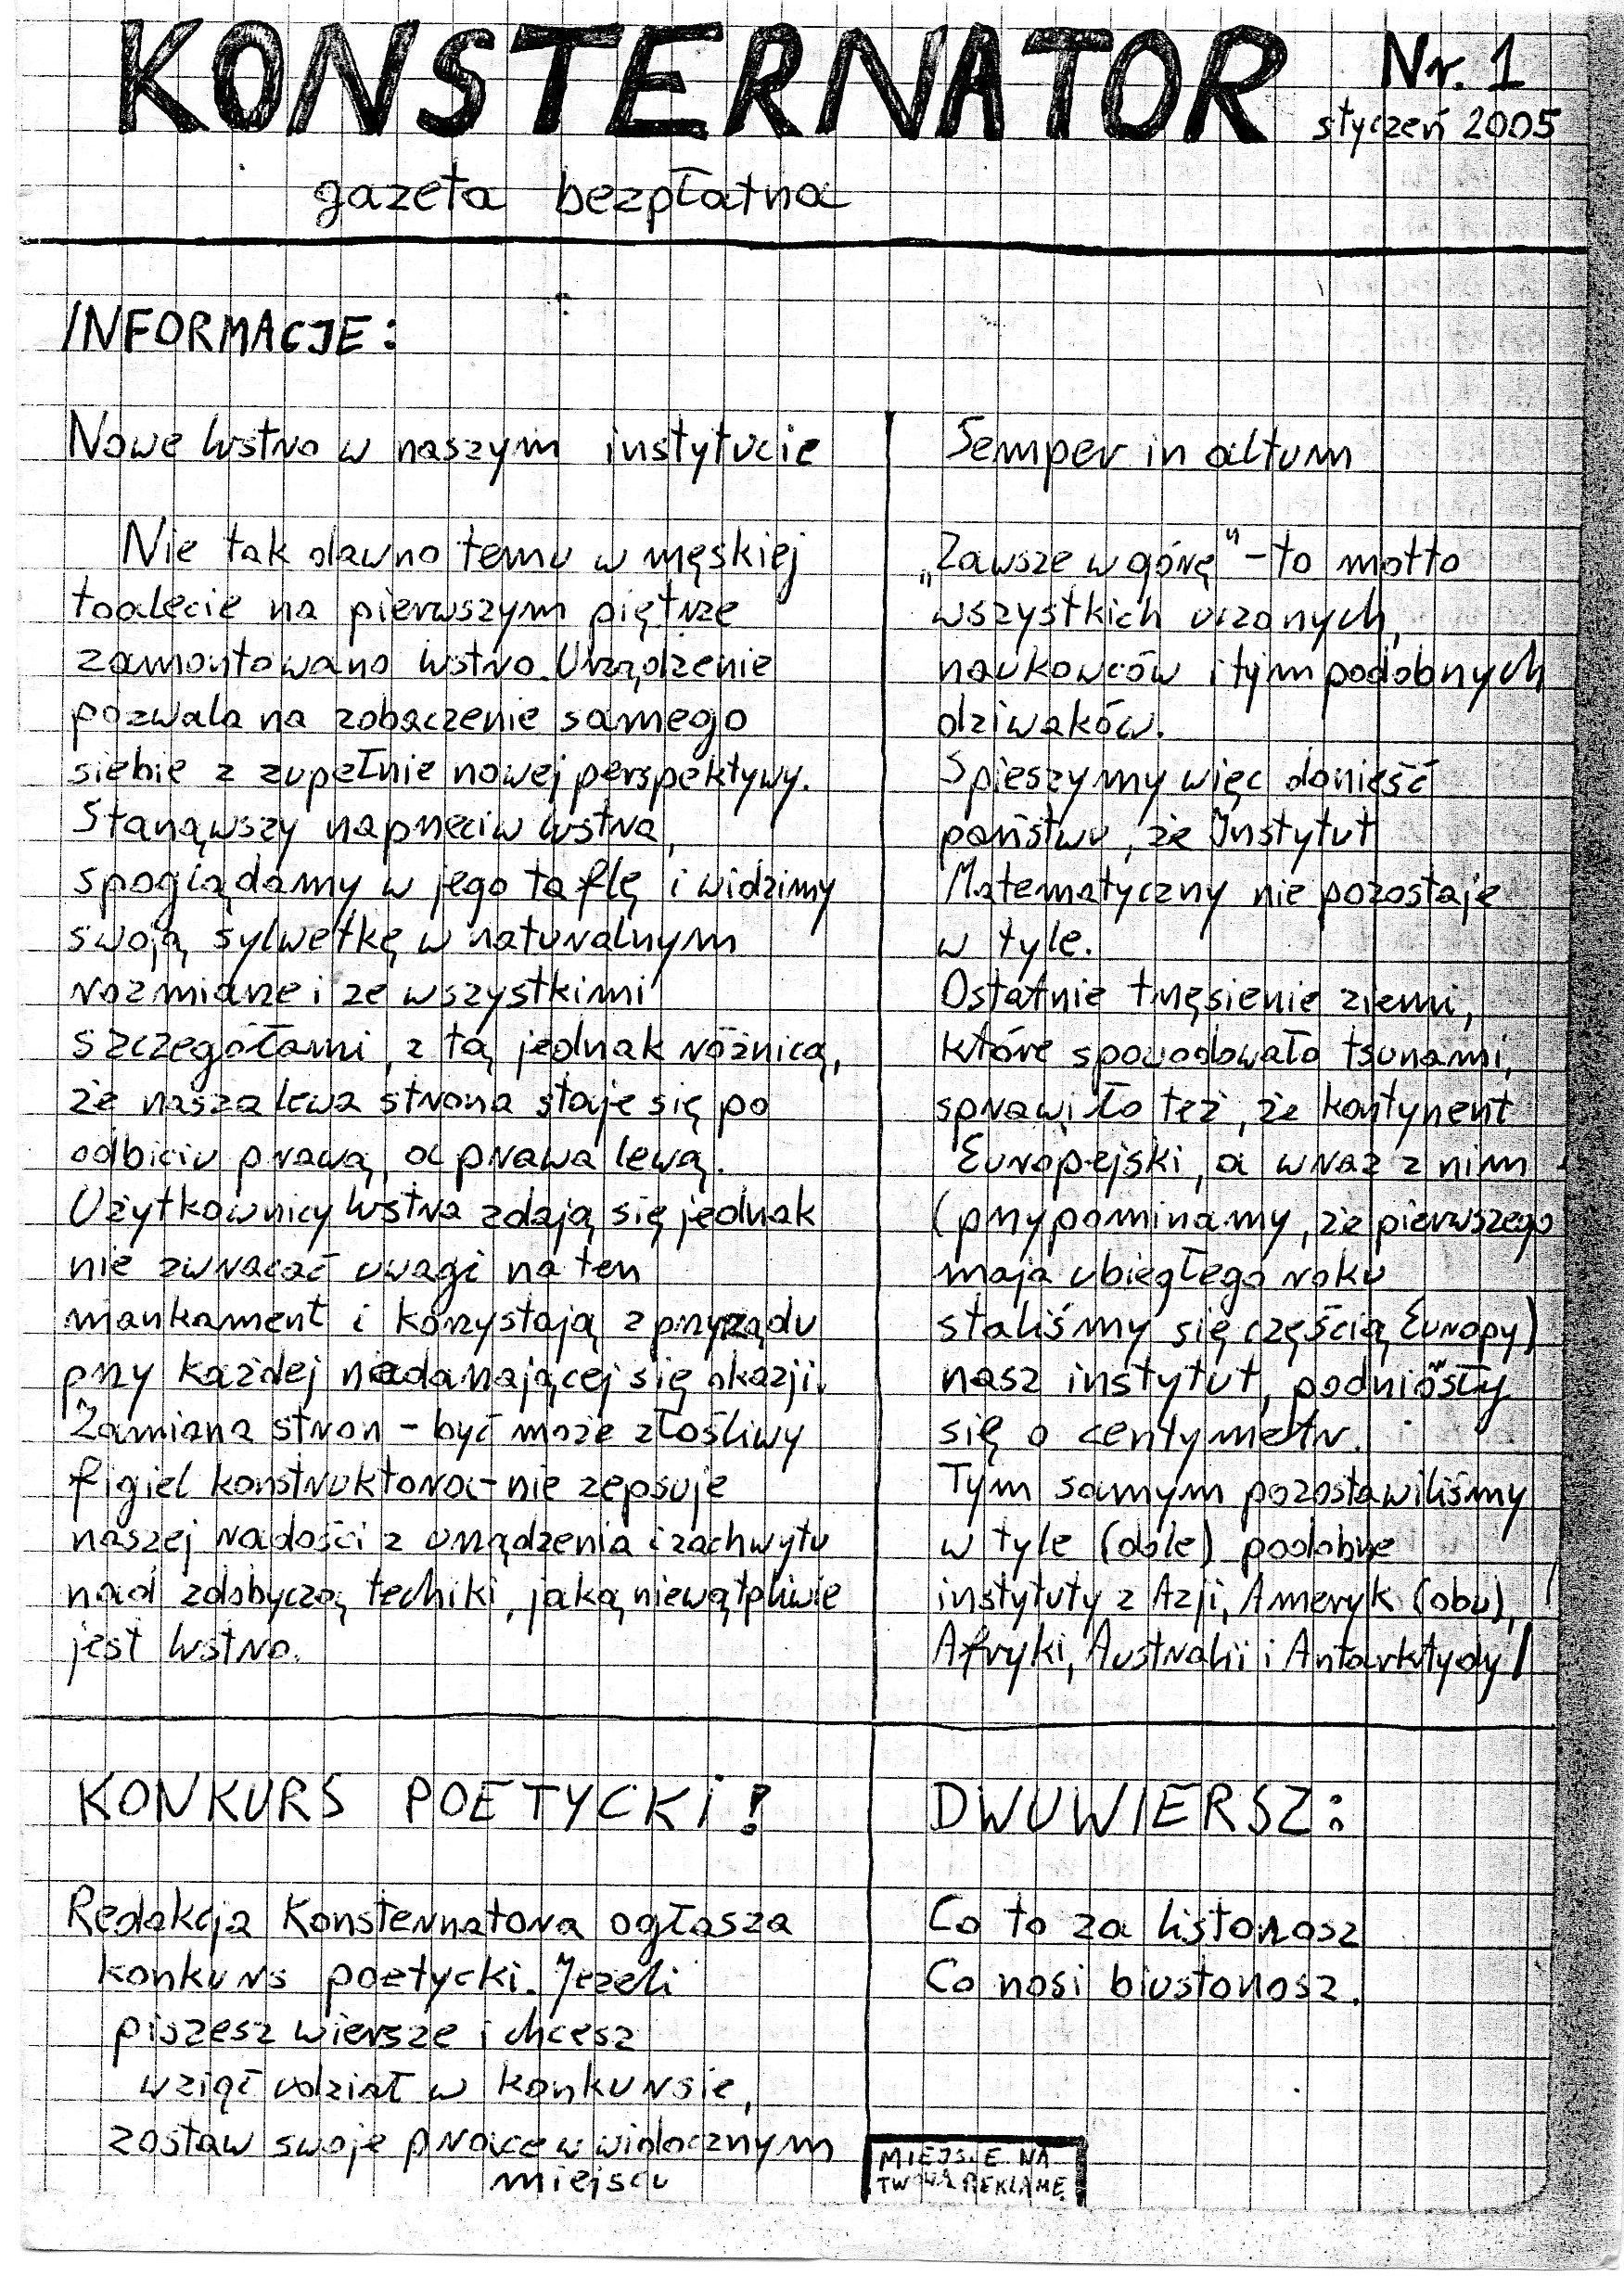 KONSTERNATOR
Nr. 1
styczeń 2005
gazeta bezpłatna
INFORMACJE:
Nowe lustro w naszym instytucie
Nie tak dawno temu w męskiej
toalecie na pierwszym piętrze
zamontowano lustro. Urządzenie
pozwala na zobaczenie samego
siebie z zupełnie nowej perspektywy.
Stanąwszy naprzeciw lustra,
spoglądamy w jego taflę i widzimy
swoją sylwetkę w naturalnym
rozmiarze i ze wszystkimi
szczegółami, z tą jednak różnicą,
że nasza lewa strona staje się po
odbiciu prawą, a prawa lewą.
Użytkownicy lustra zdają się jednak
nie zwracać uwagi na ten
mankament i korzystają z przyrządu
przy każdej nadarzającej się okazji.
Zamiana stron – być może złośliwy
figiel konstruktora – nie zepsuje
naszej radości z urządzenia i zachwytu
nad zdobyczą techiki, jaką niewątpliwie
jest lustro.
Semper in altum
„Zawsze w górę" – to motto
wszystkich uczonych,
naukowców i tym podobnych
dziwaków.
Spieszymy więc donieść
państwu, że Instytut
Matematyczny nie pozostaje
w tyle.
Ostatnie trzęsienie ziemi,
które spowodowało tsunami,
sprawiło też, że kontynent
Europejski, a wraz z nim
(przypominamy, że pierwszego
maja ubiegłego roku
staliśmy się częścią Europy)
nasz instytut, podniosły
się o centymetr.
Tym samym pozostawiliśmy
w tyle (dole) podobne
instytuty z Azji, Ameryk (obu),
Afryki, Australii i Antarktydy!
KONKURS POETYCKI!
Redakcja Konsternatora ogłasza
konkurs poetycki. Jeżeli
piszesz wiersze i chcesz
wziąć udział w konkursie,
zostaw swoje prace w widocznym
miejscu
DWUWIERSZ:
Co to za listonosz
Co nosi biustonosz.
MIEJSCE NA
TWOJĄ REKLAMĘ